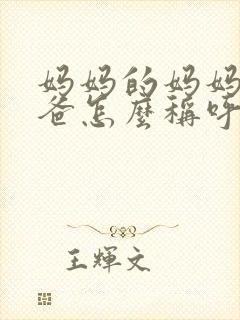 妈妈的妈妈
爸怎麼稱呼
王輝文